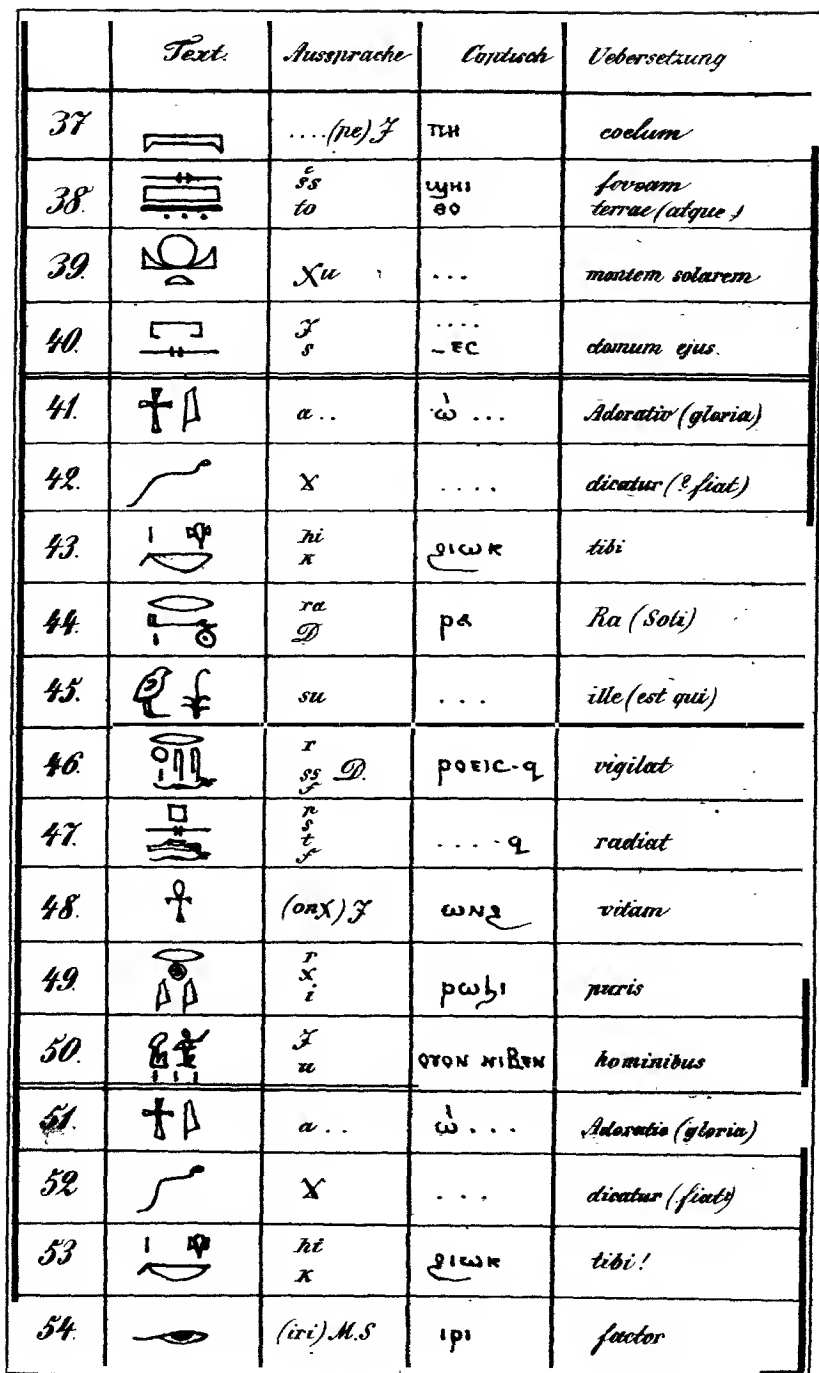 Text. Aussprache Coptisch Uebersetzung
37 ....(pe) J ⲡⲏ coelum
38. šs ϣⲏⲓ foveam
to ⲑⲟ terrae (atque)
39. Xu ... montem solarem
40. J ....
s –ⲉⲥ domum ejus.
41. a.. ώ ... Adoratio (gloria)
42. X .... dicatur (? fiat)
43. hi
k ϩⲓⲱⲕ tibi
44. ra
D ⲣⲁ Ra (Soli)
45. su ... ille (est qui)
46. r
ss D.
f ⲣⲟⲉⲓⲥ-ϥ vigilat
47. p
s
t
f ....ϥ radiat
48. (onX) J ⲱⲛϩ vitam
49. r
X
i ⲣⲱϧⲓ puris
50. J
u ⲟⲩⲟⲛ ⲛⲓⲃⲉⲛ hominibus
51. a.. ώ ... Adoratio (gloria)
52 X ... dicatur (fiat)
53 hi
k ϩⲓⲱⲕ tibi!
54. (iri) M.S ⲓⲣⲓ factor